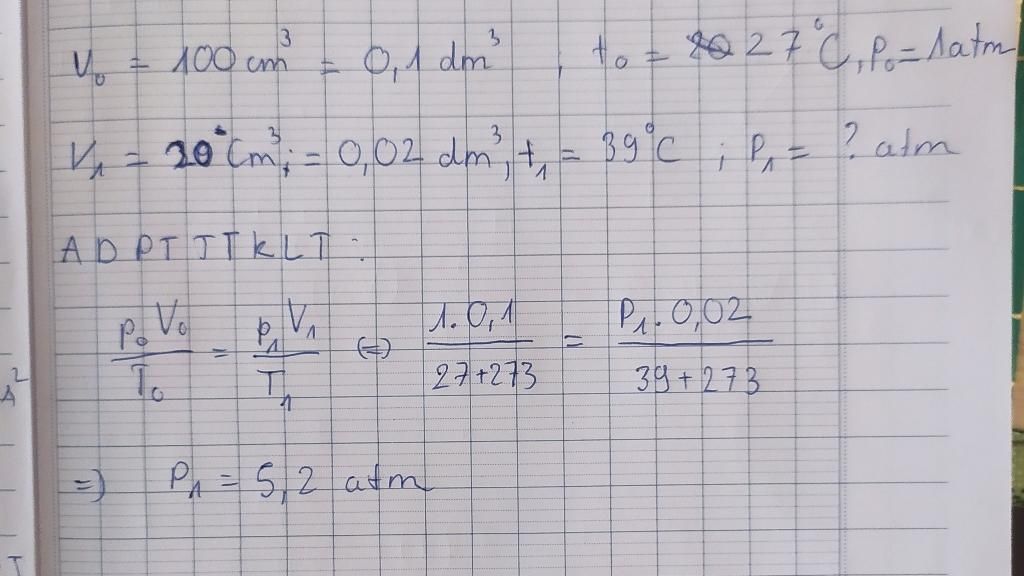 V₀ = 100 cm³ = 0,1 dm³ ; t₀ = 27°C, P₀ = 1atm
V₁ = 20 cm³; = 0,02 dm³, t₁ = 39°C ; P₁ = ? atm
A D P T T T K L T :
P₀V₀/T₀ = P₁V₁/T₁ (=) 1.0,1/27+273 = P₁.0,02/39+273
=) P₁ = 5,2 atm